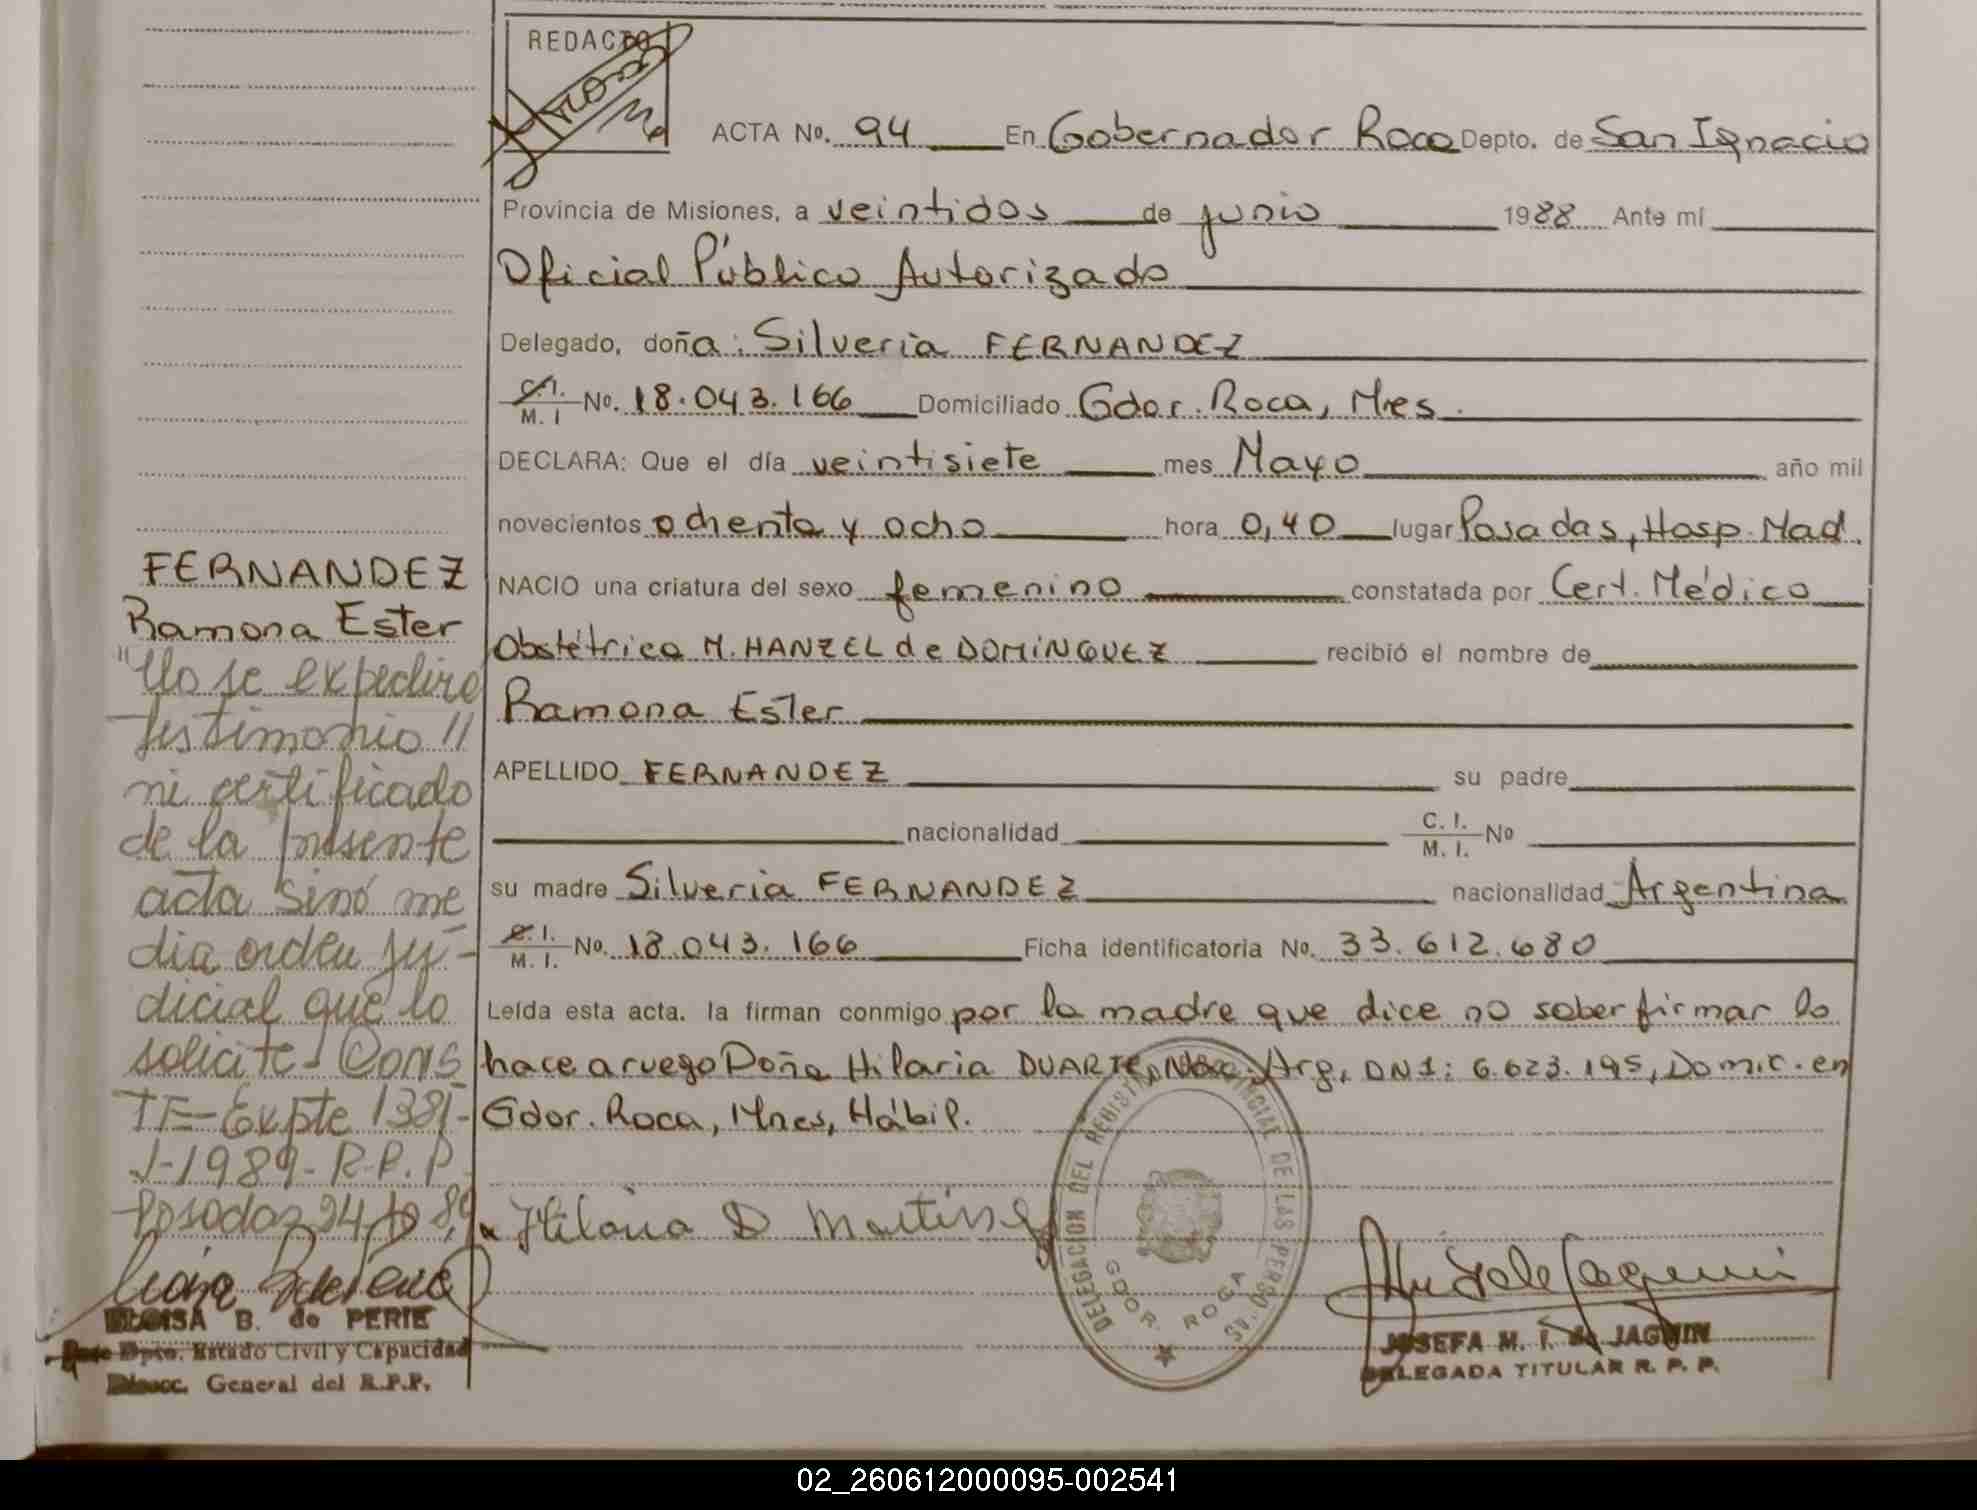 REDACTO
ACTA No. 94 En Gobernador Roca Depto. de San Ignacio
Provincia de Misiones, a veintidos de junio 1988 Ante mí
Oficial Público Autorizado
Delegado, doña: Silveria FERNANDEZ
C.I. M. I No. 18.043.166 Domiciliado Gdor. Roca, Mnes.
DECLARA: Que el día veintisiete mes Mayo año mil
novecientos ochenta y ocho hora 0,40 lugar Posadas, Hosp. Mad.
NACIO una criatura del sexo femenino constatada por Cert. Médico
Obstétrica M. HANZEL de DOMÍNGUEZ recibió el nombre de
Ramona Ester
APELLIDO FERNANDEZ su padre
nacionalidad C. I. M. I. No
su madre Silveria FERNANDEZ nacionalidad Argentina
C. I. M. I. No. 18.043.166 Ficha identificatoria No. 33.612.680
Leída esta acta. la firman conmigo por la madre que dice no saber firmar lo
hace a ruego Doña Hilaria DUARTE, Nac. Arg, DNI: 6.623.195, Domic. en
Gdor. Roca, Mnes, Hábil.
Hilaria D Martinez
DELEGACION DEL REGISTRO PROVINCIAL DE LAS PERSONAS
GDOR. ROCA
JOSEFA M. I. de JAGUIN
DELEGADA TITULAR R. P. P.
FERNANDEZ
Ramona Ester
"No se expedirá
testimonio //
ni certificado
de la presente
acta sinó me
dia orden ju-
dicial que lo
solicite. CONS
TE= Expte 1381-
J-1989- R.P.P.
Posadas 24 89
ELOISA B. de PERIE
Dpto. Estado Civil y Capacidad
Direcc. General del R.P.P.
02_260612000095-002541